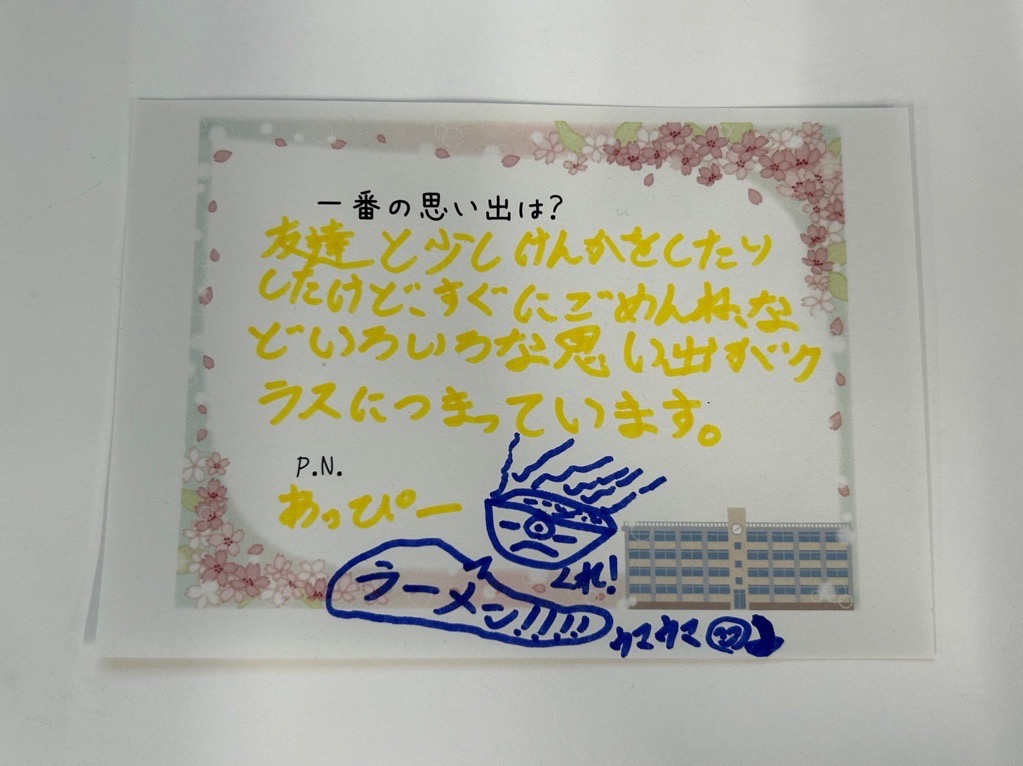 一番の思い出は?
友達と少しけんかをしたり
したけど、すぐにごめんね、な
どいろいろな思い出がク
ラスにつまっています。
P.N.
わっぴー
くれ!
ラーメン!!!!
ウマウマ